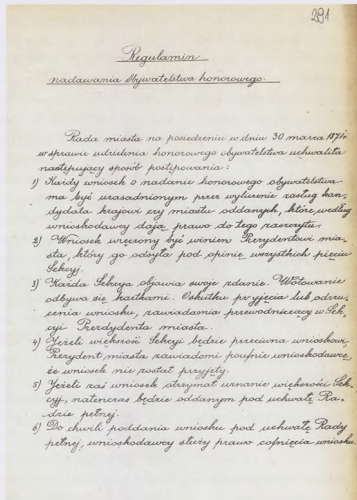 291
Regulamin
nadawania obywatelstwa honorowego.
Rada miasta na posiedzeniu w dniu 30 marca 1871r.
w sprawie udzielenia honorowego obywatelstwa uchwaliła
następujący sposób postępowania:
1) Każdy wniosek o nadanie honorowego obywatelstwa
ma być uzasadnionym przez wyliczenie zasług kan-
dydata krajowi czy miastu oddanych, które, według
wnioskodawcy dają prawo do tego zaszczytu.
2) Wniosek wręczony być winien Prezydentowi mia-
sta, który go odsyła pod opinię wszystkich pięciu
Sekcyj.
3) Każda Sekcya objawia swoje zdanie. Wotowanie
odbywa się kartkami. O skutku przyjęcia lub odrzu-
cenia wniosku, zawiadamia przewodniczący w Sek-
cyi Prezydenta miasta.
4) Jeżeli większość Sekcyi będzie przeciwna wnioskowi,
Prezydent miasta zawiadomi poufnie wnioskodawcę,
że wniosek nie został przyjęty.
5) Jeżeli zaś wniosek otrzymał uznanie większości Sek-
cyj, natenczas będzie oddanym pod uchwałę Ra-
dzie pełnej.
6) Do chwili poddania wniosku pod uchwałę Rady
pełnej, wnioskodawcy służy prawo cofnięcia wniosku.